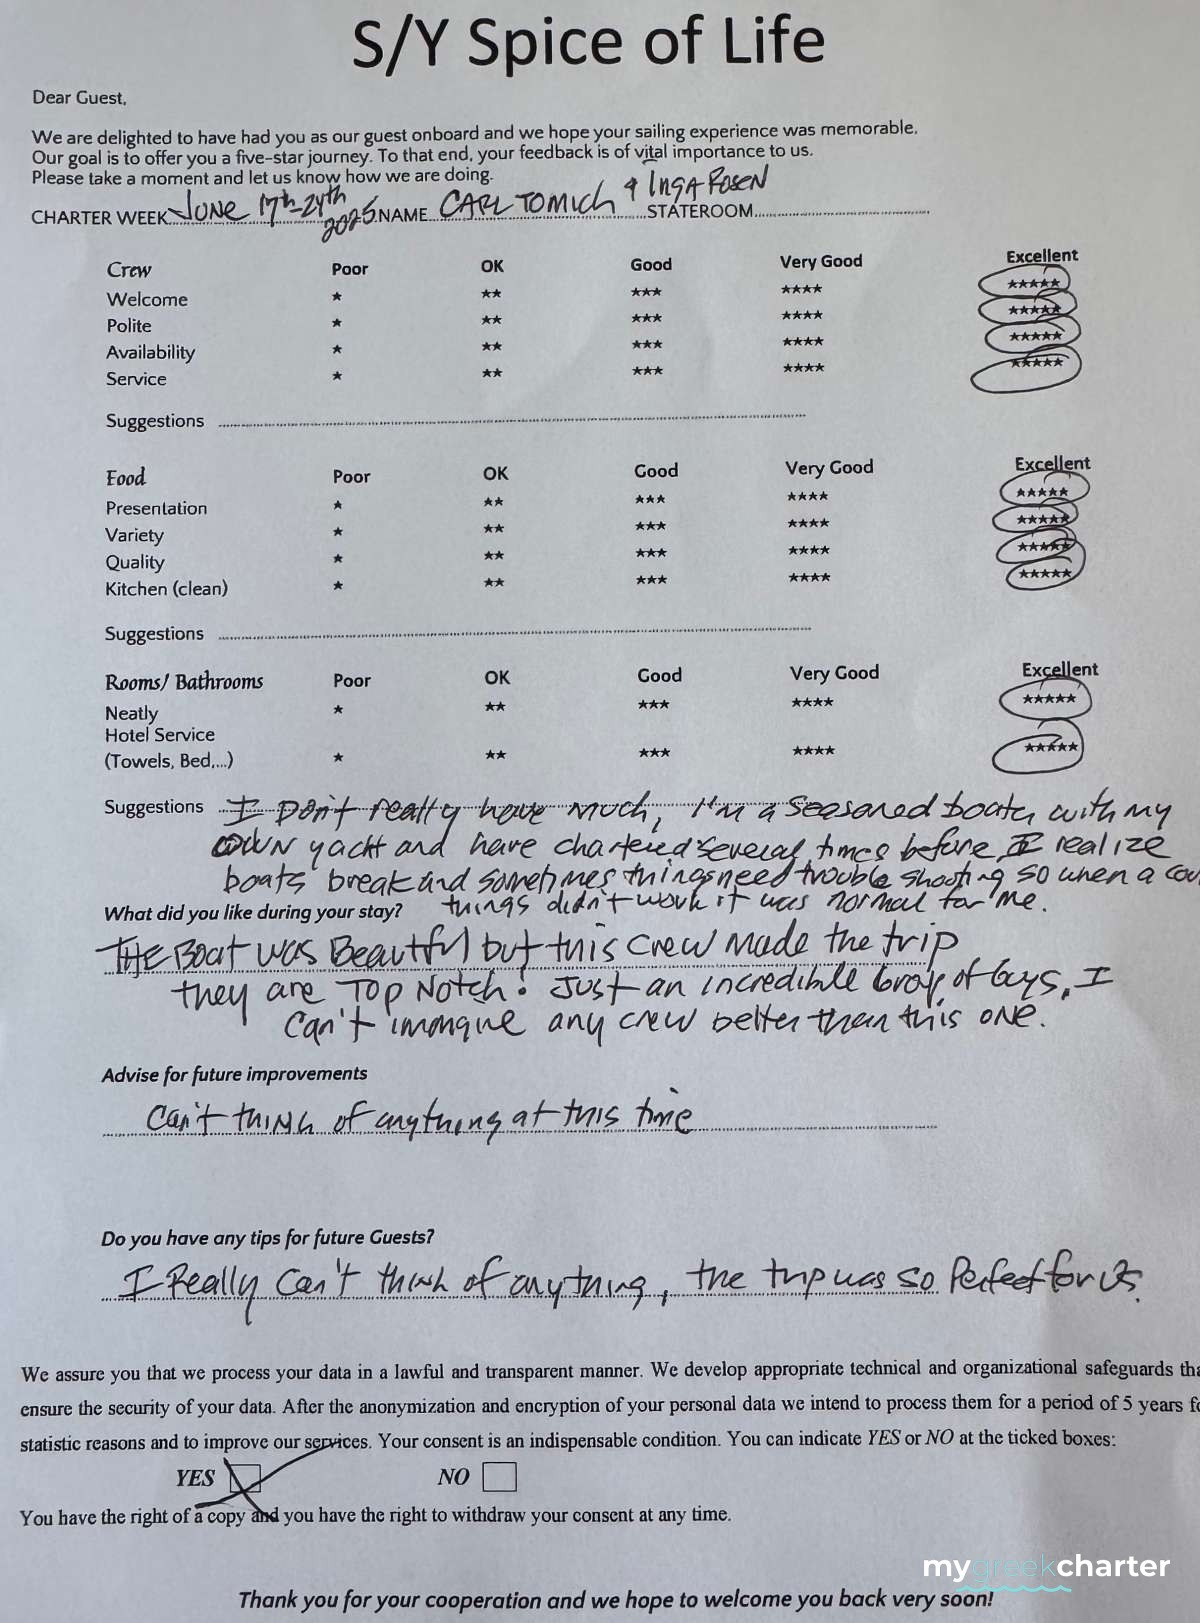 S/Y Spice of Life
Dear Guest,
We are delighted to have had you as our guest onboard and we hope your sailing experience was memorable.
Our goal is to offer you a five-star journey. To that end, your feedback is of vital importance to us.
Please take a moment and let us know how we are doing.
CHARTER WEEK June 17th-24th 2025 NAME CARL TOMICH & INGA ROSEN STATEROOM
Crew Poor OK Good Very Good Excellent
Welcome ★ ★★ ★★★ ★★★★ ★★★★★
Polite ★ ★★ ★★★ ★★★★ ★★★★★
Availability ★ ★★ ★★★ ★★★★ ★★★★★
Service ★ ★★ ★★★ ★★★★ ★★★★★
Suggestions
Food Poor OK Good Very Good Excellent
Presentation ★ ★★ ★★★ ★★★★ ★★★★★
Variety ★ ★★ ★★★ ★★★★ ★★★★★
Quality ★ ★★ ★★★ ★★★★ ★★★★★
Kitchen (clean) ★ ★★ ★★★ ★★★★ ★★★★★
Suggestions
Rooms/ Bathrooms Poor OK Good Very Good Excellent
Neatly ★ ★★ ★★★ ★★★★ ★★★★★
Hotel Service
(Towels, Bed,...) ★ ★★ ★★★ ★★★★ ★★★★★
Suggestions I Don't really have much, I'm a seasoned boater with my
own yacht and have chartered several times before, I realize
boats break and sometimes things need trouble shooting so when a
things didn't work it was normal for me.
What did you like during your stay?
THE Boat was Beautiful but this crew made the trip
they are TOP NOTCH! Just an incredible Group of Guys, I
Can't imagine any crew better than this one.
Advise for future improvements
Can't think of anything at this time
Do you have any tips for future Guests?
I Really Can't think of anything, the trip was so Perfect for Us.
We assure you that we process your data in a lawful and transparent manner. We develop appropriate technical and organizational safeguards tha
ensure the security of your data. After the anonymization and encryption of your personal data we intend to process them for a period of 5 years fo
statistic reasons and to improve our services. Your consent is an indispensable condition. You can indicate YES or NO at the ticked boxes:
YES NO
You have the right of a copy and you have the right to withdraw your consent at any time.
mygreekcharter
Thank you for your cooperation and we hope to welcome you back very soon!